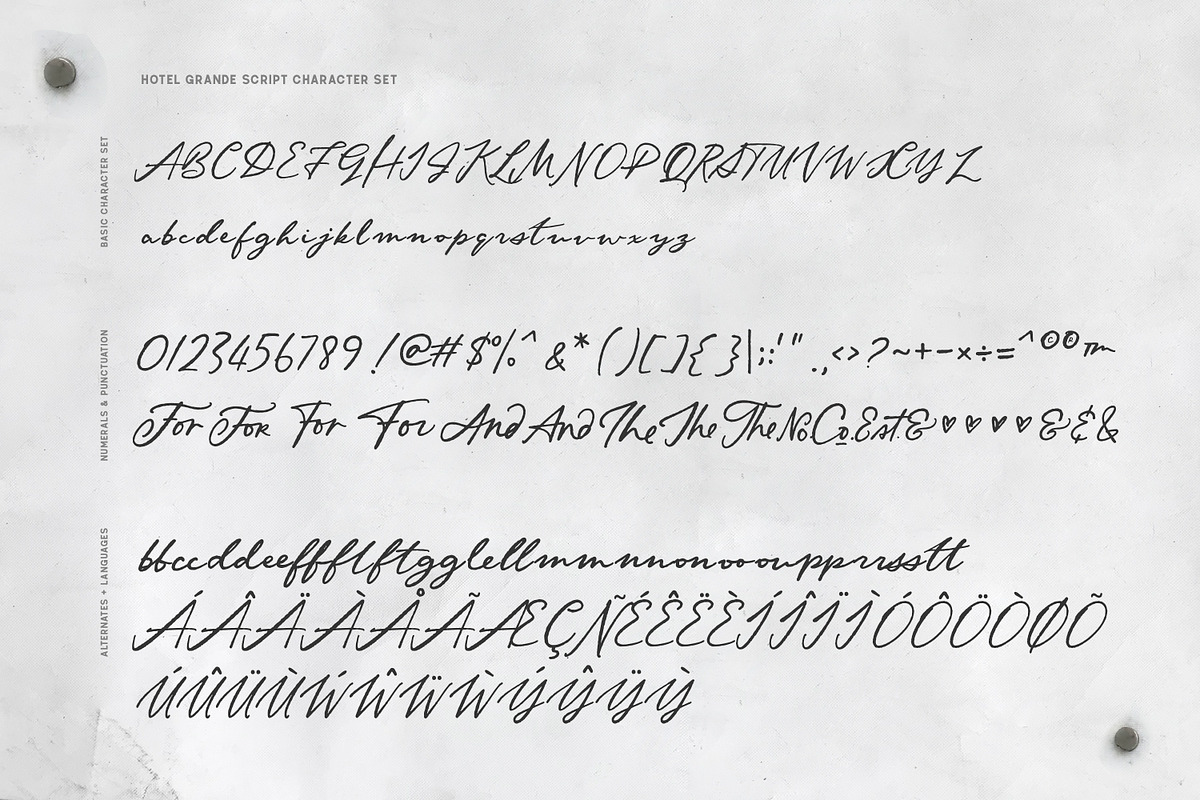 HOTEL GRANDE SCRIPT CHARACTER SET
BASIC CHARACTER SET
ABCDEFGHIJKLMNOPQRSTUVWXYZ
abcdefghijklmnopqrstuvwxyz
NUMERALS & PUNCTUATION
0123456789!@#$%^&*()[]{}|;:'".,<>?~+-×÷=^©®™
For For For For And And The The The No. Co. Est. & ♥ ♥ ♥ ♥ & & &
ALTERNATES + LANGUAGES
bbccddeeffflftgglellmmnnonoooupprrssstt
ÁÂÄÀÅÃÆÇÑÉÊËÈÍÎÏÌÓÔÖÒØÕ
ÚÛÜÙẂŴẄẀÝŶŸỲ